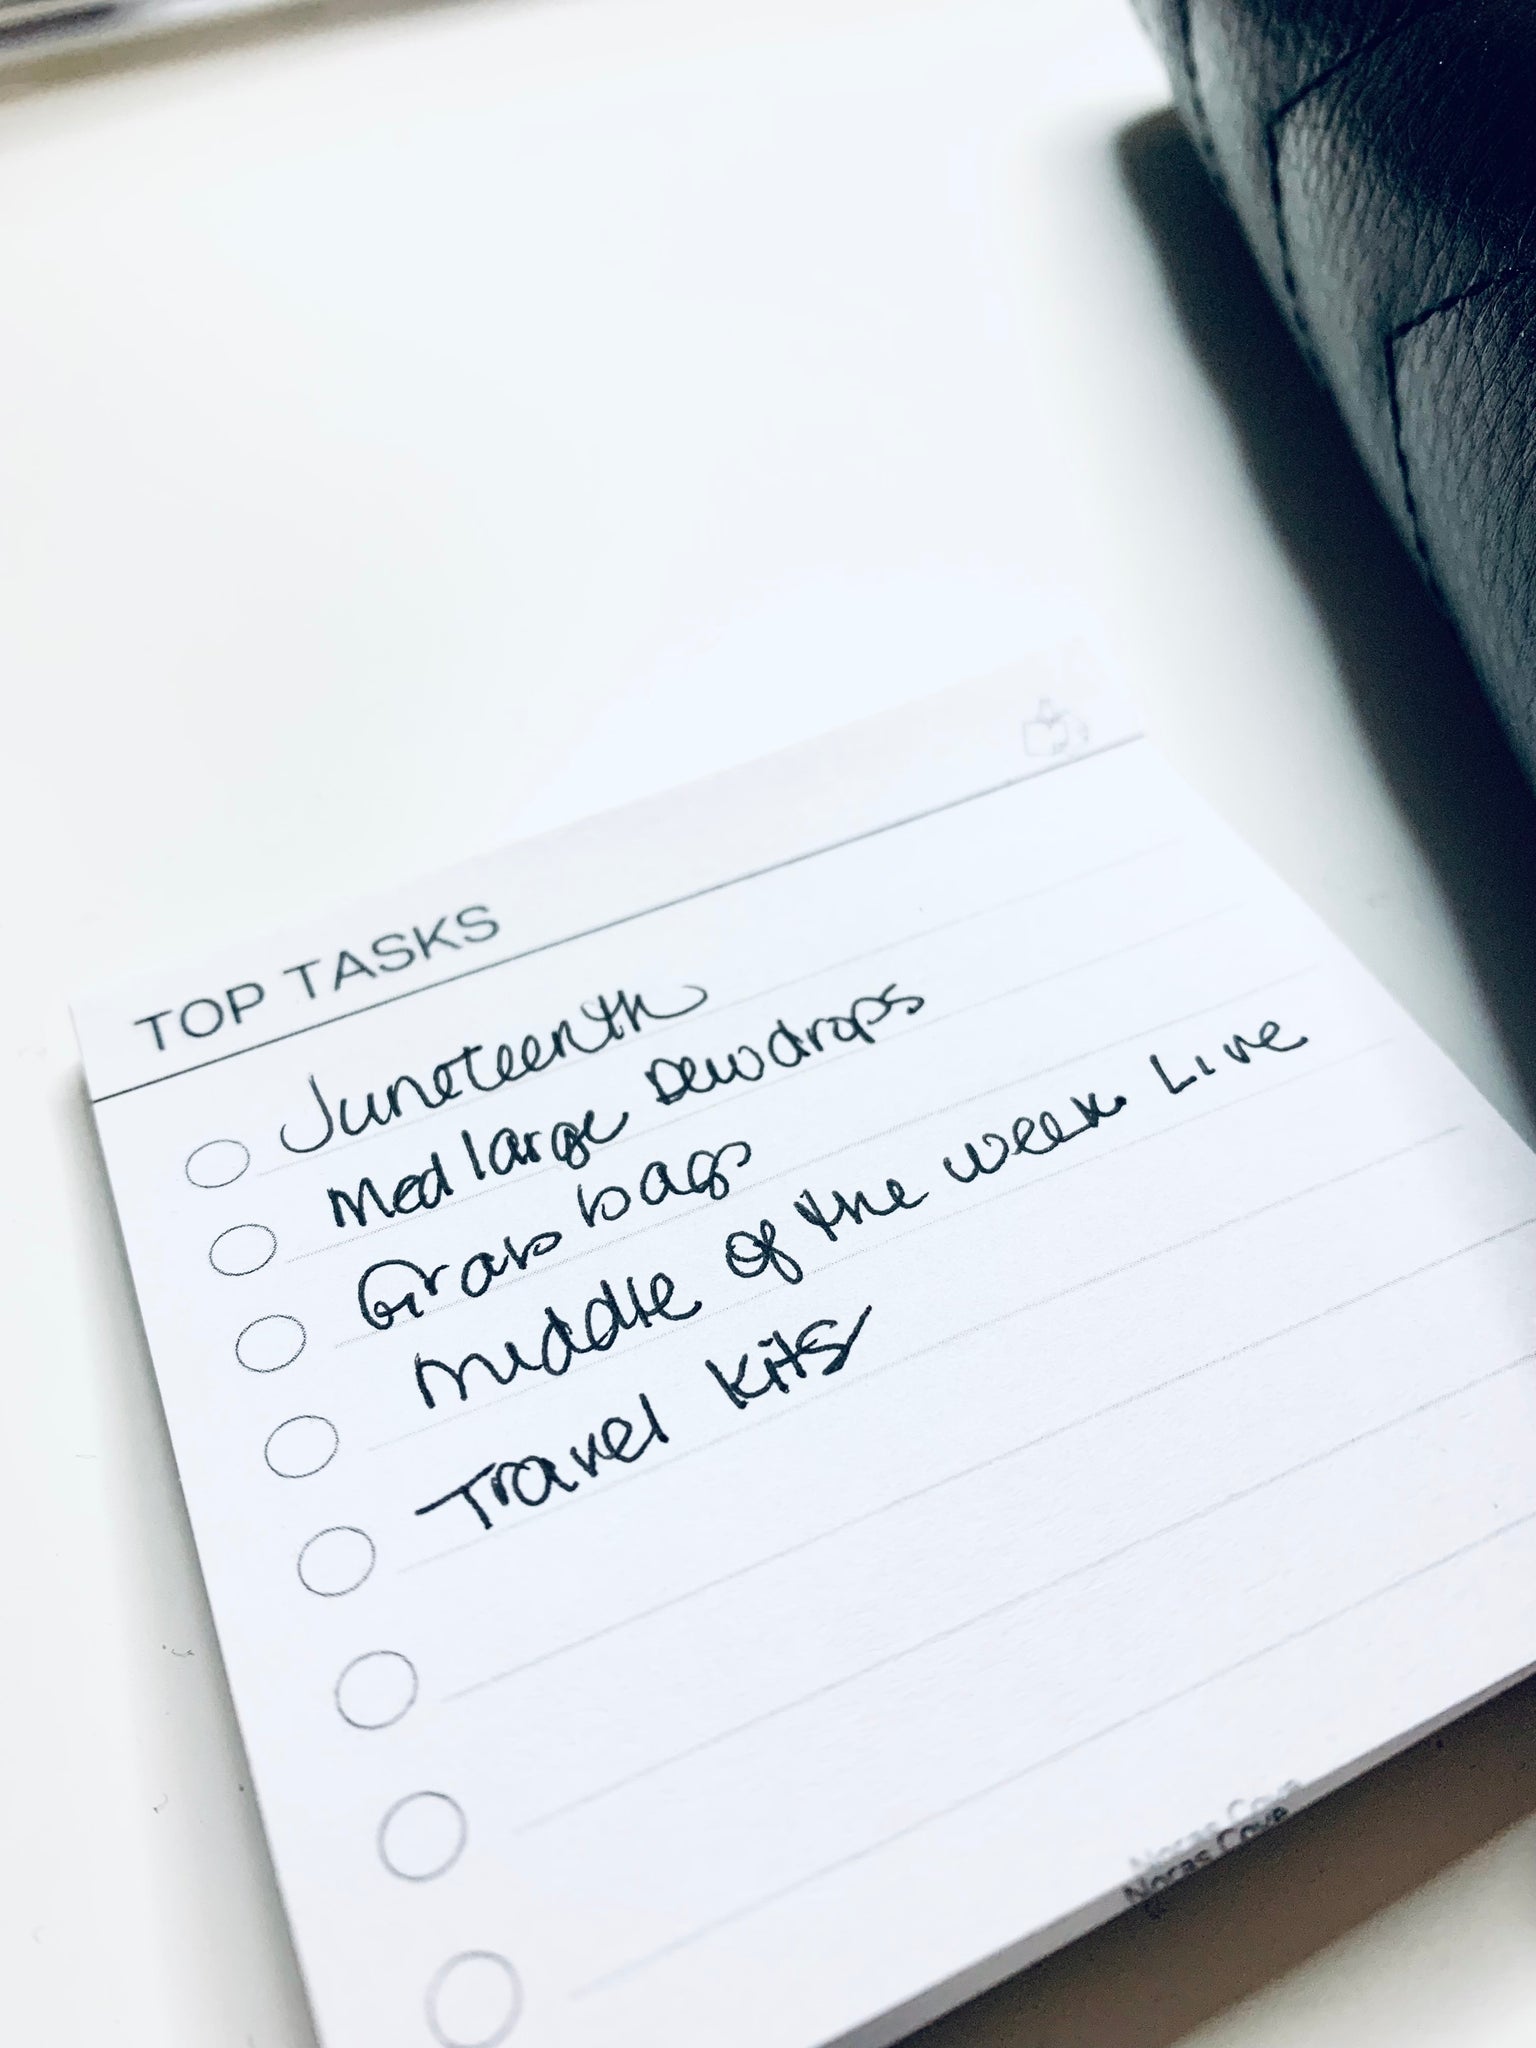 TOP TASKS
Juneteenth
Med large Dewdrops
Grab bags
Middle of the week Live
Travel kits
Noras Cove
Noras Cove